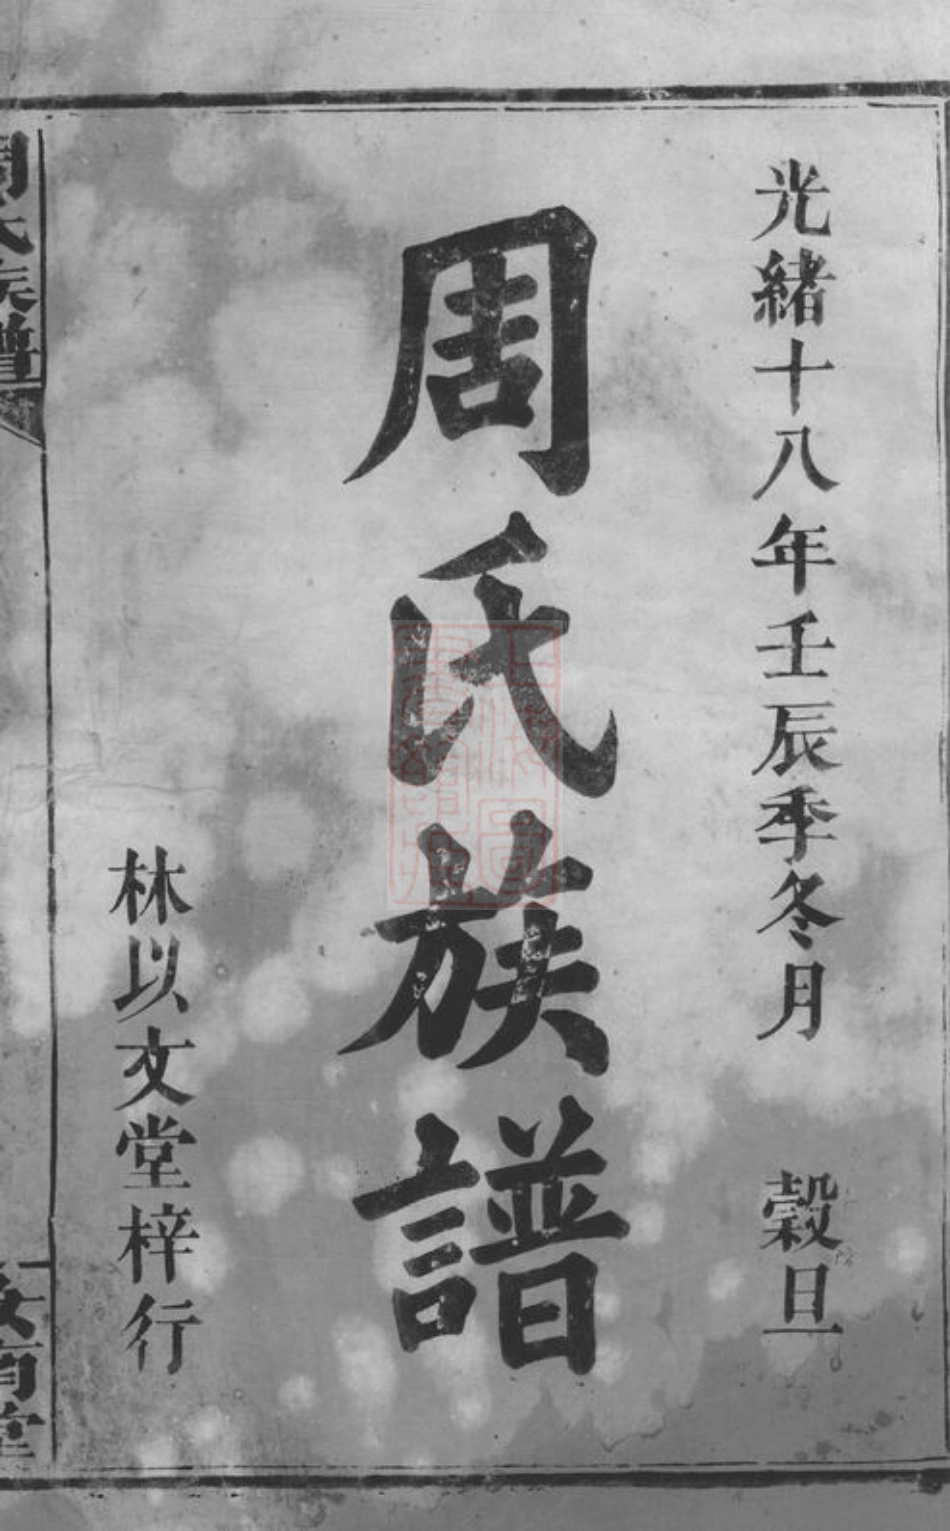 光緒十八年壬辰季冬月 穀旦
周氏族譜
林以文堂梓行
周氏族譜